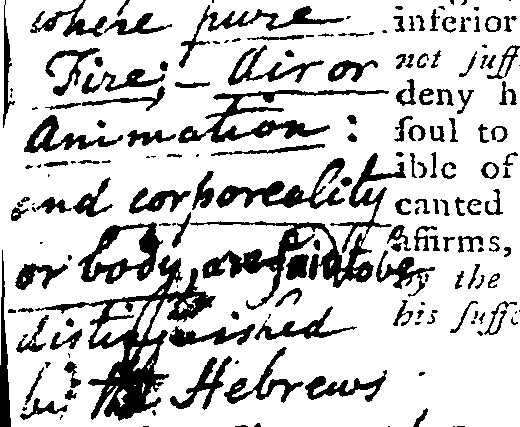 where pure
Fire; – Air or
Animation :
and corporeality
or body, are said to be
distinguished
by the Hebrews
inferior
not ſuff
deny h
ſoul to
ible of
canted
affirms,
by the
his ſuffe